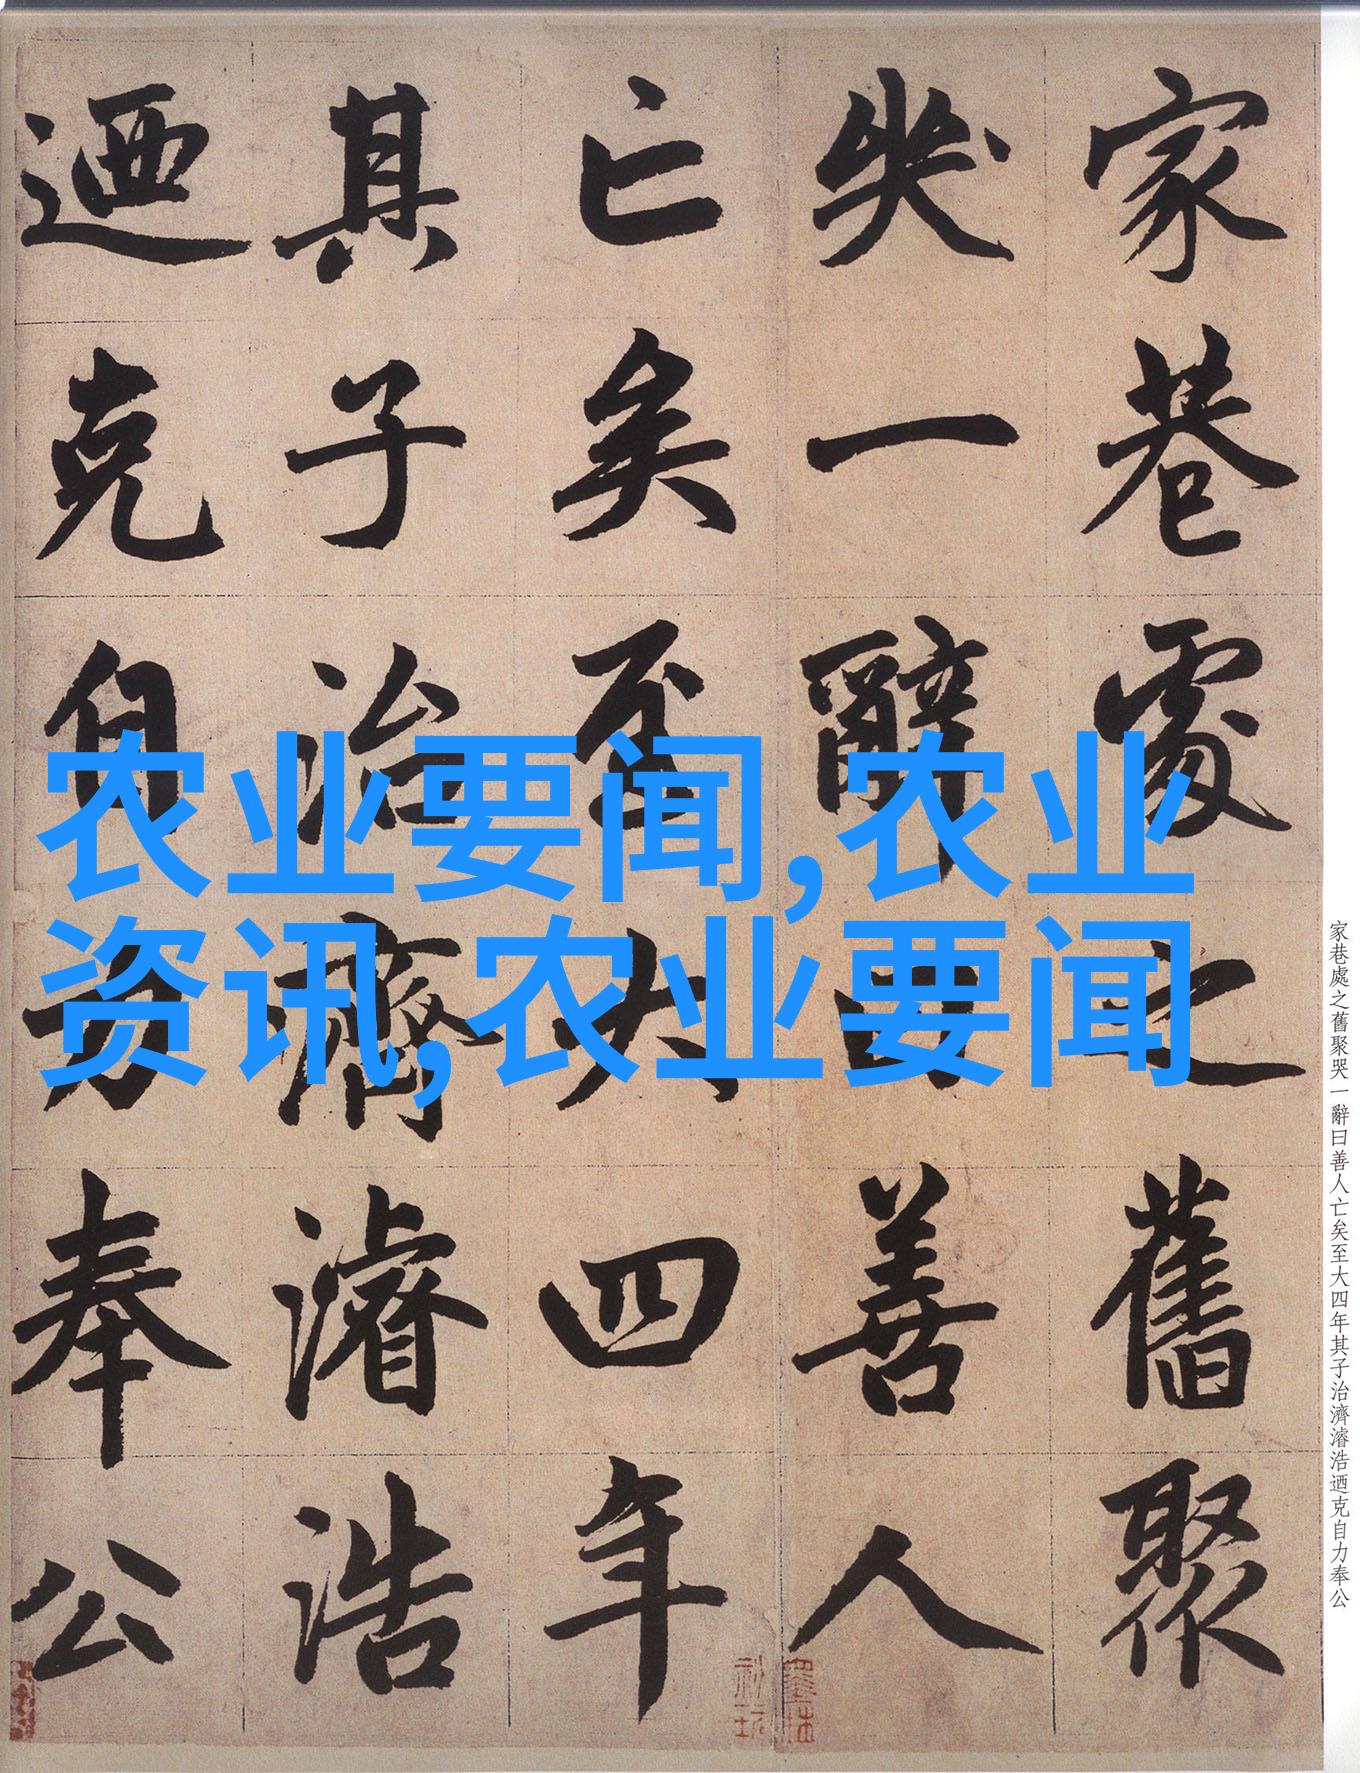 家巷處之舊聚
哭一辭曰善人
亡矣至大四年
其子治濟濬浩
迺克自力奉公
家巷處之舊聚哭一辭曰善人亡矣至大四年其子治濟濬浩迺克自力奉公
农业要闻,农业
资讯,农业要闻
墨林
秘玩